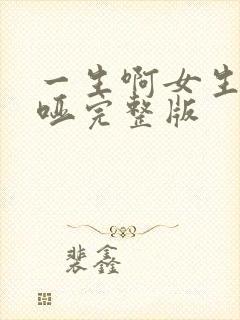 一生啊女生
哑完整版
裴鑫